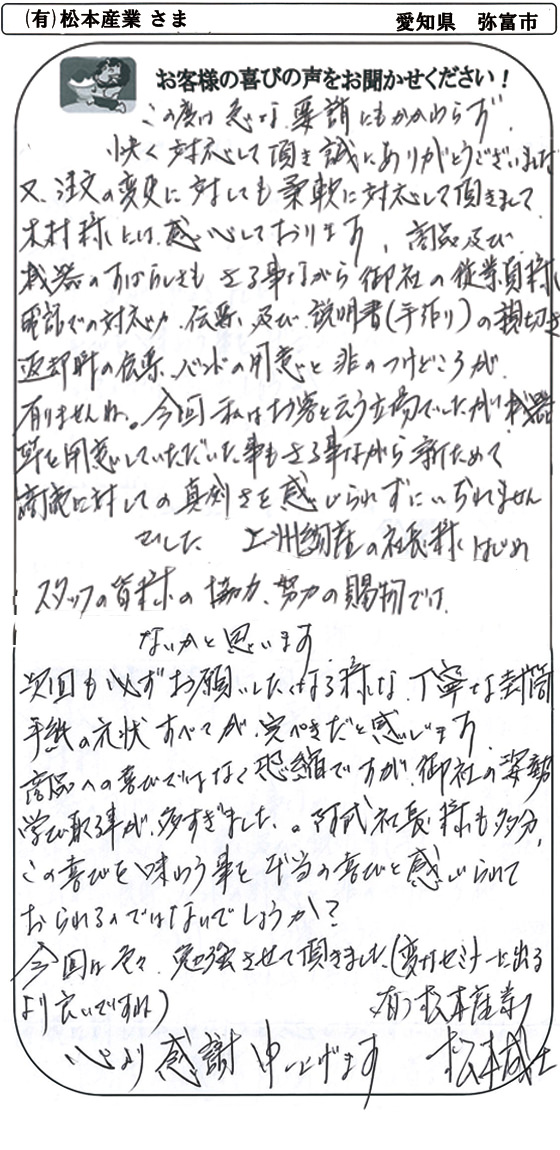 (有)松本産業 さま 愛知県 弥富市
お客様の喜びの声をお聞かせください！
この度は 急な 要請にもかかわらず
快く 対応して頂き 誠にありがとうございました
又、注文の変更に対しても 柔軟に対応して頂きまして
木村様には、感心しております、商品及び
機器のすばらしさも さる事ながら 御社の従業員様
電話での対応や、伝票、及び 説明書(手作り)の親切さ
返却時の伝票、バンドの用意と 非のつけどころが
有りませんね。今回 私はお客と云う立場でしたが 機器
等を用意していただいた事もさる事ながら 新ためて
商売に対しての真剣さを 感じられずにいられません
でした 上州物産の社長様はじめ
スタッフの皆様の協力、努力の賜物では
ないかと思います
次回も必ずお願いしたくなる様な 丁寧な封筒
手紙の礼状 すべてが 完ぺきだと感じます
商品への喜びではなく恐縮ですが、御社の姿勢
学び取る事が、多すぎました。阿武社長様も多分、
この喜びを味わう事を 本当の喜びと感じられて
おられるのではないでしょうか？
今回は 色々、勉強させて頂きました、(変なセミナーに出る
より良いですね) (有)松本産業
心より 感謝 申し上げます 松本